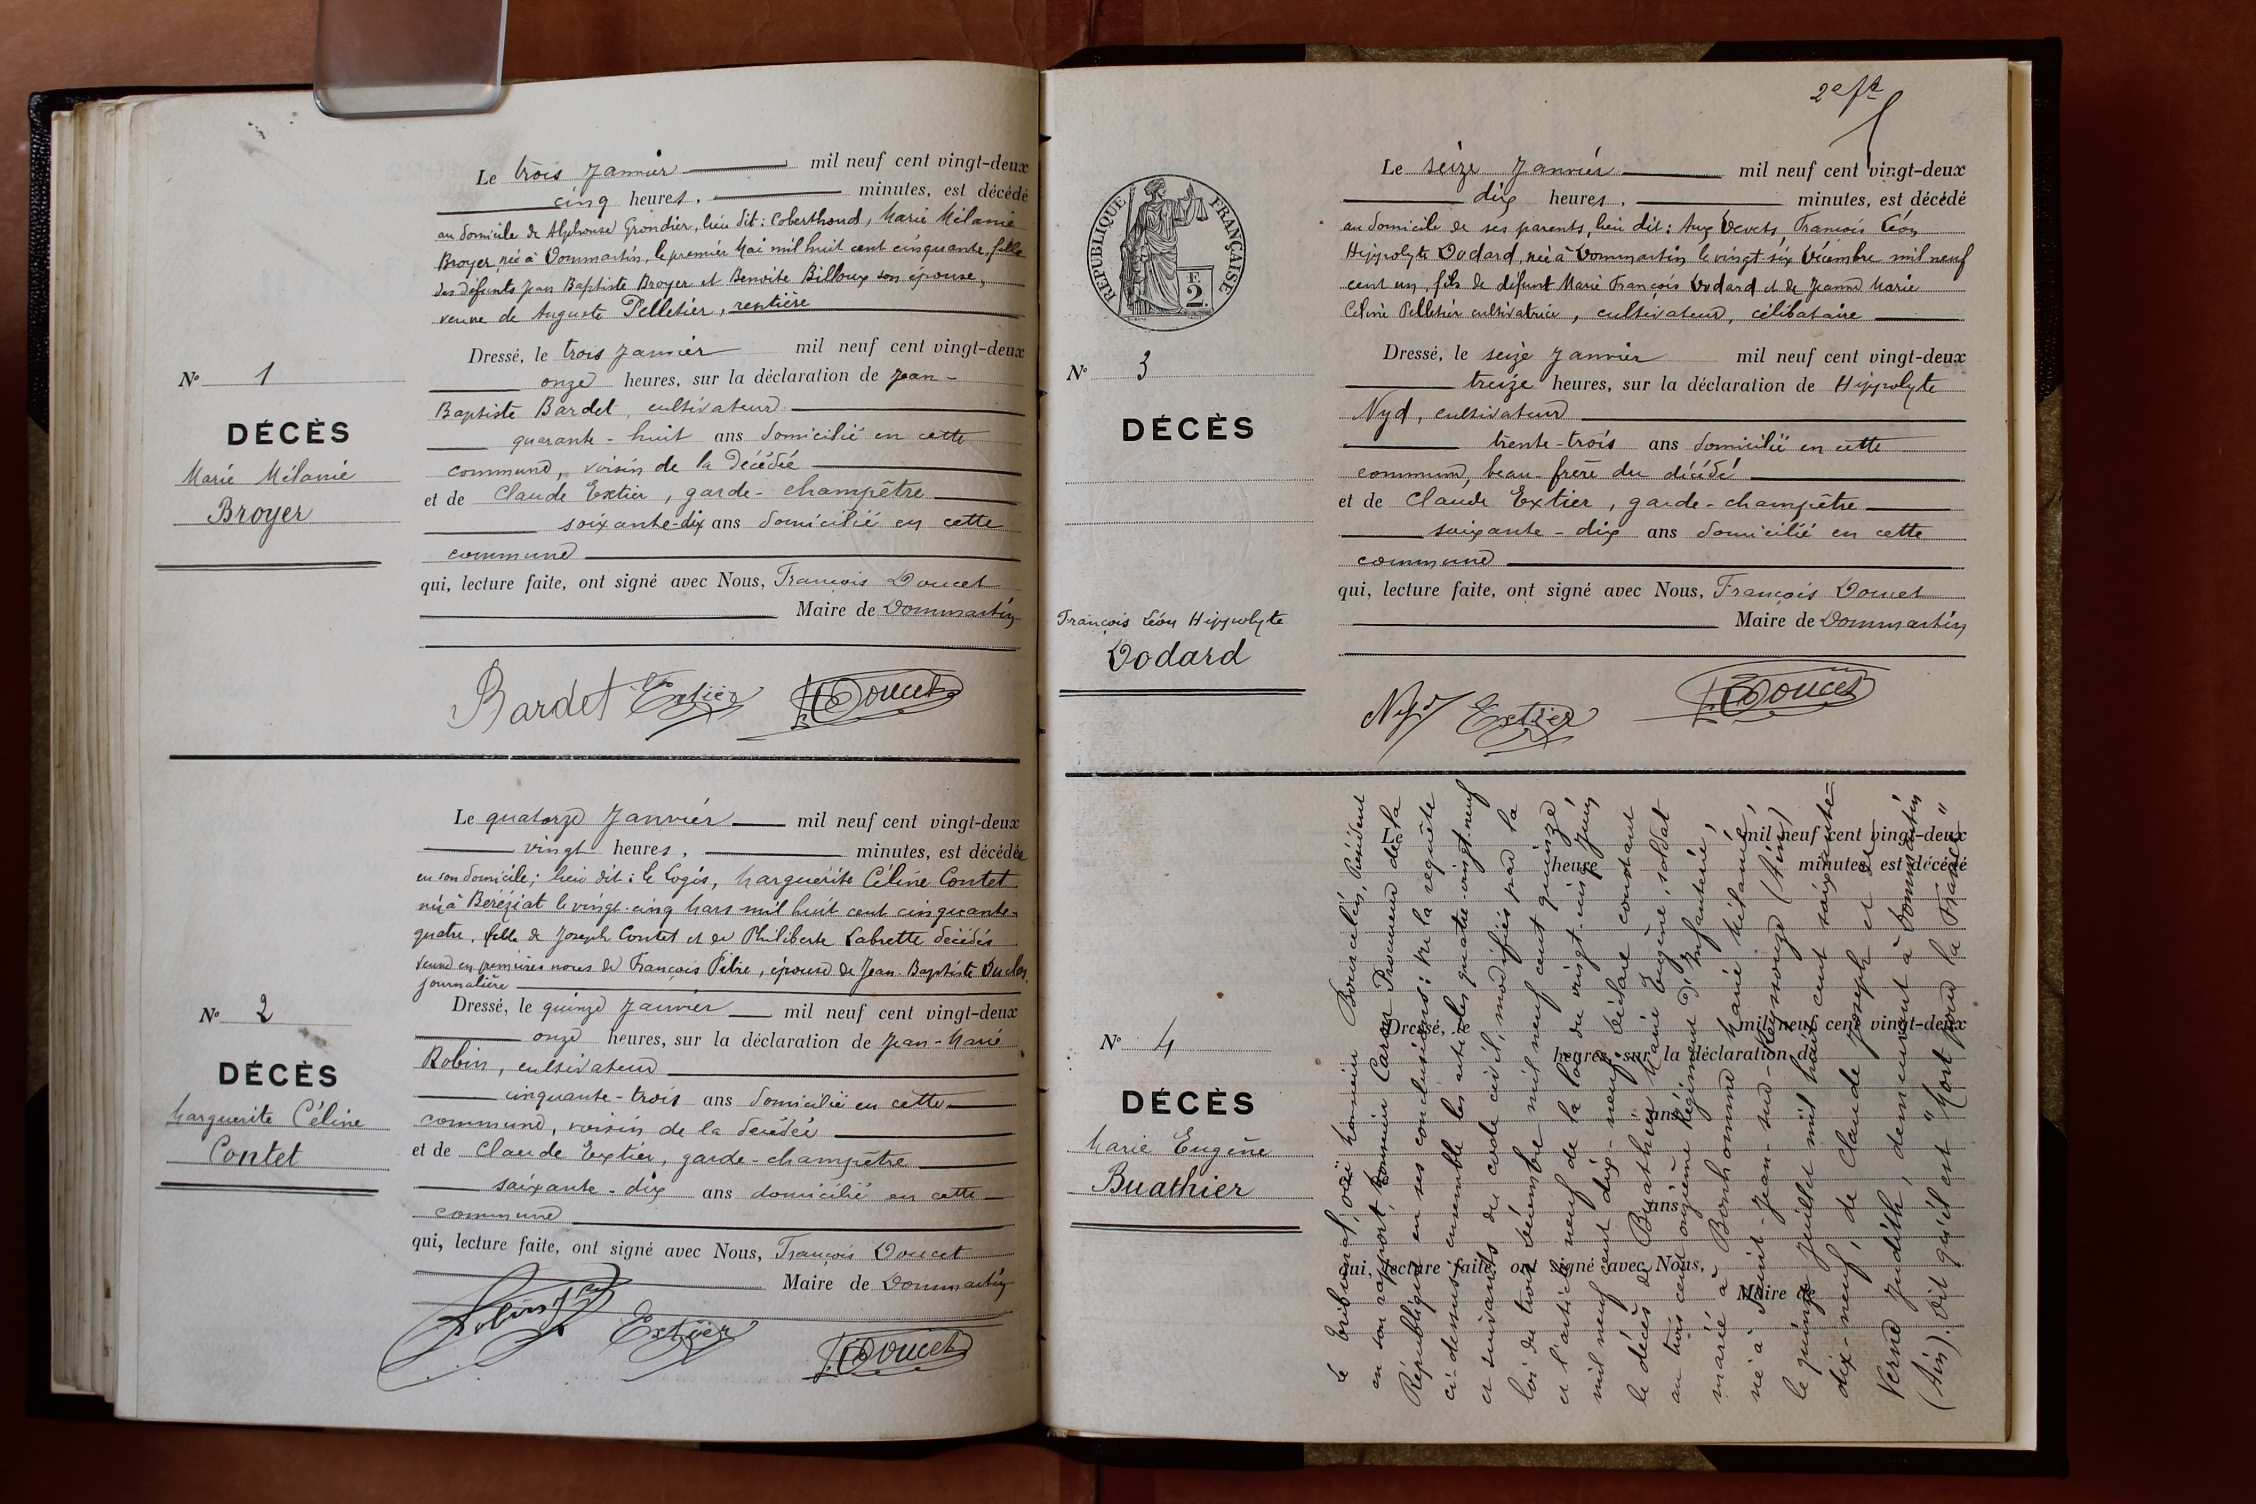 Le trois Janvier mil neuf cent vingt-deux
cinq heures, minutes, est décédé
au domicile de Alphonse Grondier, lieu dit : Coberthoud, Marie Mélanie
Broyer, née à Dommartin, le premier Mai mil huit cent cinquante, fille
des défunts Jean Baptiste Broyer et Benoite Billoux son épouse,
veuve de Auguste Pelletier, rentière
Dressé, le trois Janvier mil neuf cent vingt-deux
onze heures, sur la déclaration de Jean-
Baptiste Bardet, cultivateur
quarante-huit ans domicilié en cette
commune, voisin de la décédée
et de Claude Extier, garde-champêtre
soixante-dix ans domicilié en cette
commune
qui, lecture faite, ont signé avec Nous, François Doucet
Maire de Dommartin
Bardet Extier F. Doucet
N° 1
DÉCÈS
Marie Mélanie
Broyer
Le quatorze Janvier mil neuf cent vingt-deux
vingt heures, minutes, est décédée
en son domicile ; lieu dit : le Logis, Marguerite Céline Contet
née à Béréziat le vingt-cinq Mars mil huit cent cinquante-
quatre, fille de Joseph Contet et de Philiberte Labrette décédés
veuve en premières noces de François Pibre, épouse de Jean-Baptiste Duclos,
journalière
Dressé, le quinze Janvier mil neuf cent vingt-deux
onze heures, sur la déclaration de Jean-Marie
Robin, cultivateur
cinquante-trois ans domicilié en cette
commune, voisin de la décédée
et de Claude Extier, garde-champêtre
soixante-dix ans domicilié en cette
commune
qui, lecture faite, ont signé avec Nous, François Doucet
Maire de Dommartin
Robin Extier F. Doucet
N° 2
DÉCÈS
Marguerite Céline
Contet
2e ft
RÉPUBLIQUE FRANÇAISE
F.
2.
Le seize Janvier mil neuf cent vingt-deux
dix heures, minutes, est décédé
au domicile de ses parents, lieu dit : Aux Devets, François Léon
Hippolyte Dodard, née à Dommartin le vingt-six Décembre mil neuf
cent un, fils de défunt Marie François Dodard et de Jeanne Marie
Céline Pelletier cultivatrice, cultivateur, célibataire
Dressé, le seize Janvier mil neuf cent vingt-deux
treize heures, sur la déclaration de Hippolyte
Nyd, cultivateur
trente-trois ans domicilié en cette
commune, beau-frère du décédé
et de Claude Extier, garde-champêtre
soixante-dix ans domicilié en cette
commune
qui, lecture faite, ont signé avec Nous, François Doucet
Maire de Dommartin
Nyd Extier F. Doucet
N° 3
DÉCÈS
François Léon Hippolyte
Dodard
mil neuf cent vingt-deux
heures minutes, est décédé
Dressé, le mil neuf cent vingt-deux
heures, sur la déclaration de
ans
ans
qui, lecture faite, ont signé avec Nous,
Maire de
Le tribunal, ouï Monsieur Bourcelin, Président
en son rapport, Monsieur Caron Procureur de la
République en ses conclusions ; vu la requête
ci-dessus ensemble les articles quatre-vingt-neuf
et suivants du code civil, modifiés par la
loi du trois décembre mil neuf cent quinze
et l'article neuf de la loi du vingt-cinq Juin
mil neuf cent dix-neuf. Déclare constant
le décès de Buathier Marie Eugène, soldat
au trois cent onzième Régiment d'Infanterie,
marié à Bonhomme Marie Mélanie,
né à Saint-Jean-sur-Reyssouze (Ain)
le quinze Juillet mil huit cent soixante-
dix-neuf, de Claude Joseph et de
Verne Judith, demeurant à Dommartin
(Ain). Dit qu'il est "Mort pour la France"
N° 4
DÉCÈS
Marie Eugène
Buathier